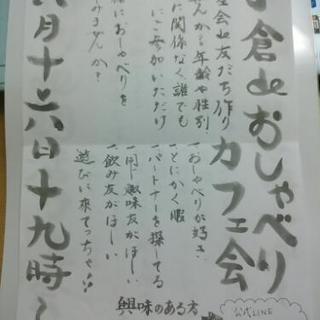 倉deおしゃべり
カフェ会
会de友だち作り
せんか?年齢や性別
に関係なく誰でも
にご参加いただけ
緒におしゃべりを
みませんか?
・おしゃべりが好き
・とにかく暇
・パートナーを探してる
・同じ趣味友がほしい
・飲み友がほしい
遊びに来てっちゃ!!
月十六日十九時〜
興味のある方
公式LINE